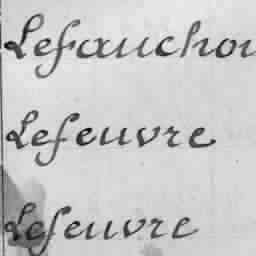 Lefauchou
Lefeuvre
Lefeuvre